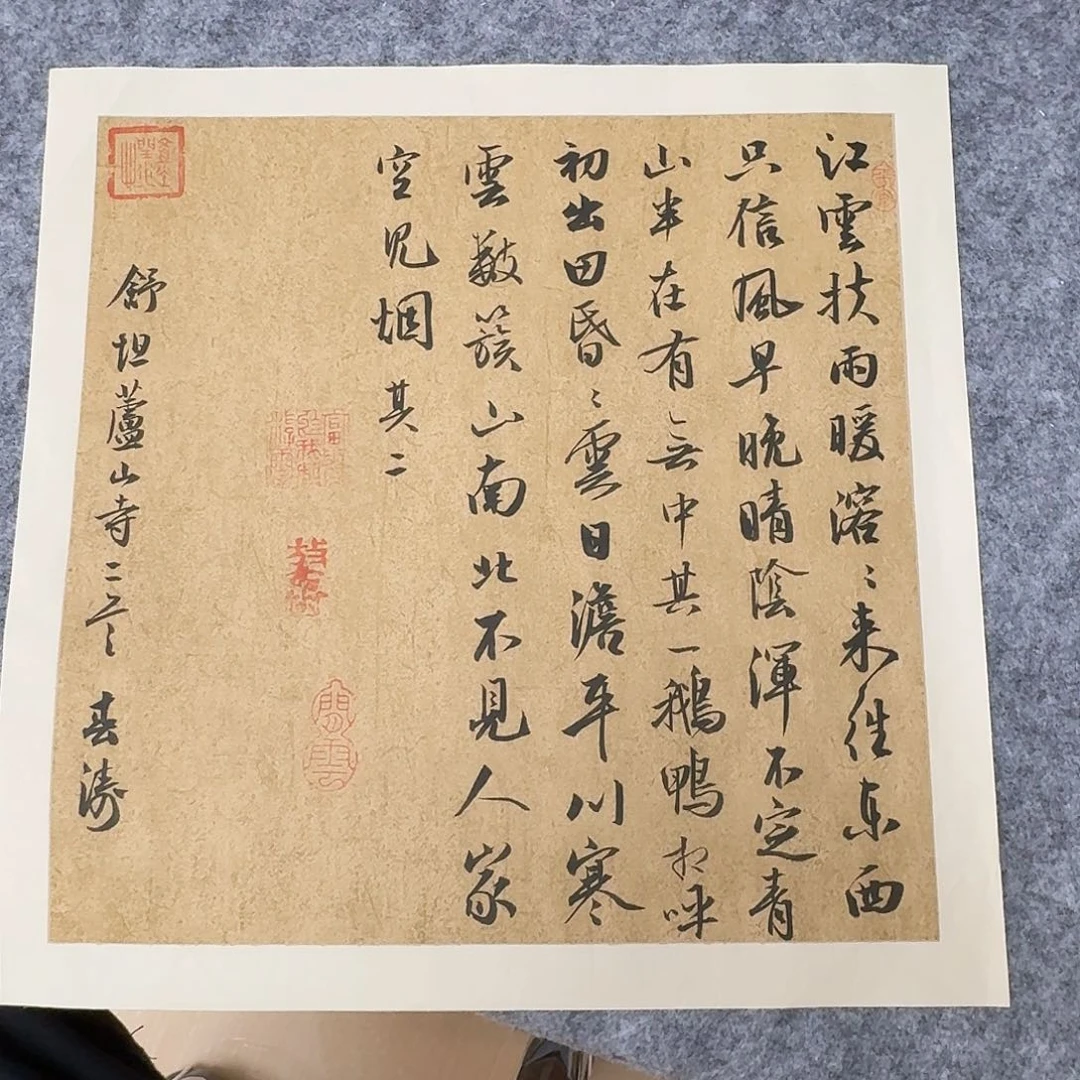 江雲扶雨暖溶〻来往东西
只信風早晚晴陰渾不定青
山半在有無中其一鵝鴨相呼
初出田昏〻雲日澹平川寒
雲數簇山南北不見人家
空見烟其二
舒坦蘆山寺二首 春濤